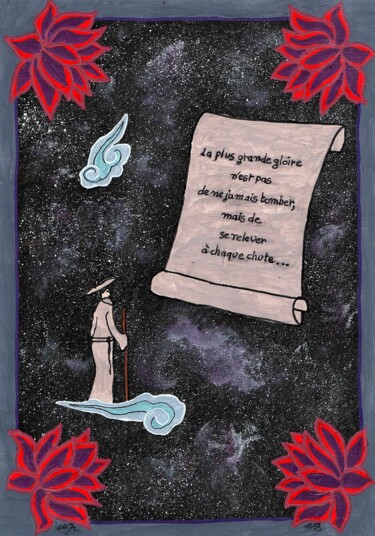 La plus grande gloire
n'est pas
de ne jamais tomber,
mais de
se relever
à chaque chute...